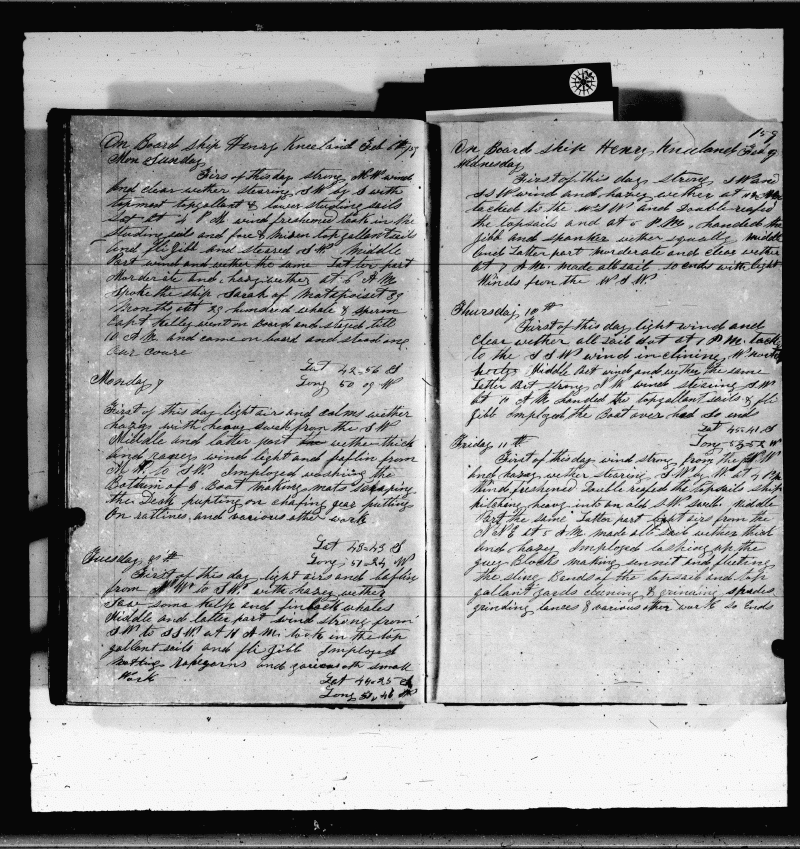 On Board Ship Henry Kneeland Feb 6th /59
Mon Sunday
Firs of this day strong N W wind
and clear wether stearing S W by S with
topmost topgallant & lower studing sails
Sat at 4 P M wind freshened took in the
Studing sails and fore & mizen topgallant sails
and fli Jibb and steared S W Middle
Part wind and wether the same Latter part
Harder at and hazy wether at 6 A M
Spoke the ship Sarah of Matapoisit 29
Months out 29 hundred whale & sperm
Capt Kelly went on board and stayed till
10 A M and came on board and stood on
our course
Lat 42-56 S
Long 50 09 W
Monday 7
First of this day light airs and calms wether
hazy with heavy swell from the S W
Middle and latter part wether thick
and rainy wind light and baflin from
N W to S W Imployed washing the
Bottom of a Boat making mats scraping
the Desk putting on chafing gear putting
On ratlines and various other work
Lat 43-43 S
Long 51-24 W
Tuesday 8th
First of this day light airs and baflin
from N W to S W with hazy wether
Saw some kelp and finback whales
Middle and latter part wind strong from
S W to S S W at A M took in the top
gallant sails and fli Jibb Imployed
Knotting ropeyarns and various oth small
Work
Lat 44-25 S
Long 51-48 W
159
On Board Ship Henry Kneeland Feb 9
Wednesday
First of this day strong S W and
S S W wind and hazy wether at
tacked to the W S W and Double reefed
the topsails and at 6 P M handed the
Jibb and spanker wether squally middle
and Latter part morderate and clear wether
at 7 A M made all sail so ends with light
Winds from the W S W
Thursday 10th
First of this day light wind and
clear wether all sail out at 1 P M tack
to the S S W wind inclining W nort
herly Middle Part wind and wether the same
Latter Part strong N W wind stearing S W
at 10 A M handed the topgallant sails & fli
Jibb Imployed the Boat over had So ends
Lat 45-41 S
Long 53-52 W
Friday 11th
First of this day wind strong from the N W
and hazy wether stearing S W by W at 4 P M
Wind freshened Double reefed the topsails ship
pitching heavy into an old S W swell Middle
Part the same Latter part light airs from the
N N E at 5 A M made all sail wether thick
and hazy Imployed lashing up the
guey Blocks making sennit and fleeting
the sling Bends of the topsail and top
gallant yards cleaning & grinding spades
grinding lances & various other work So Ends